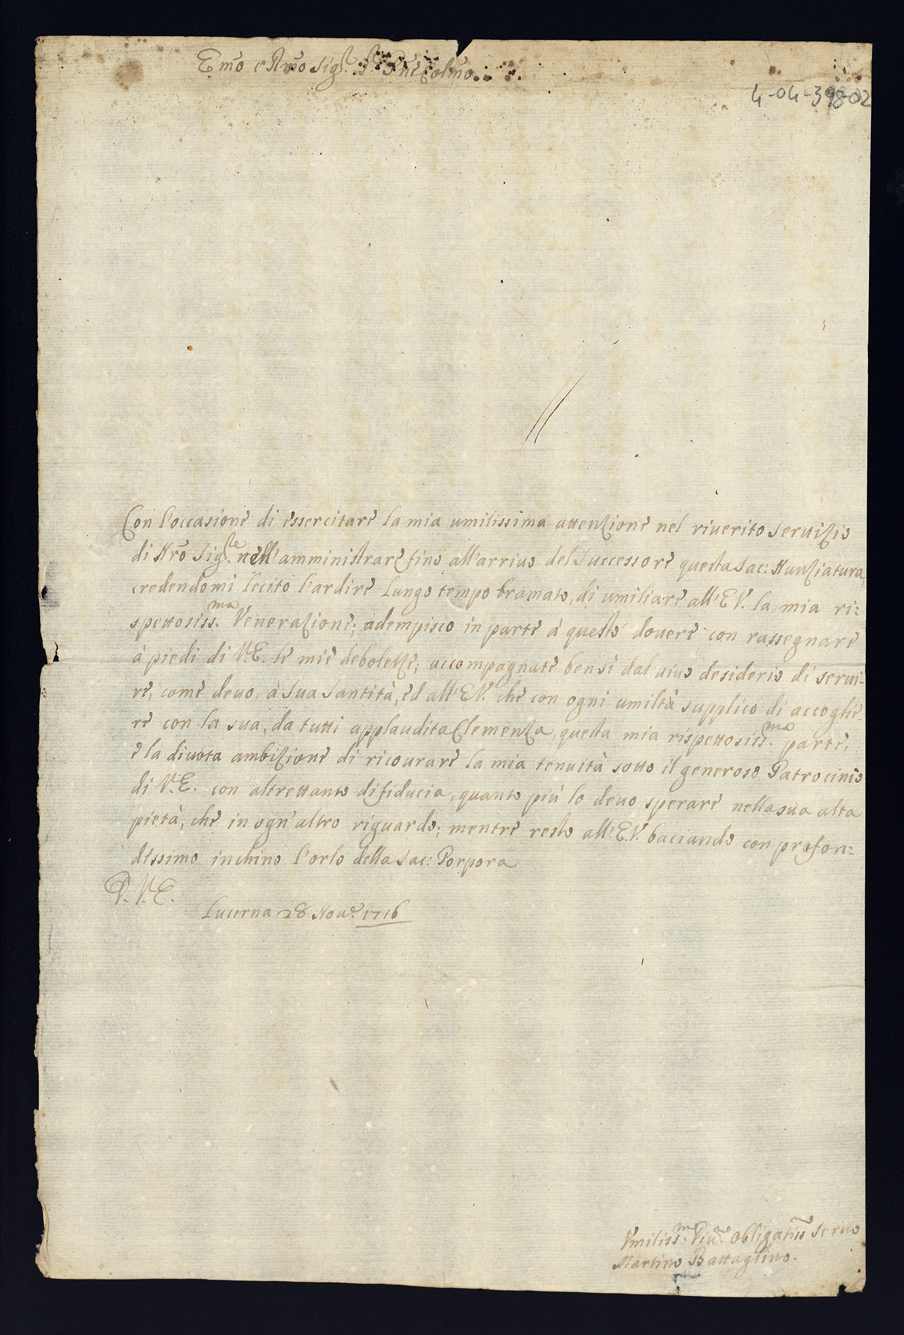 Emo e Rmo Sigr. Sr. Pne Colmo.
4-04-398-02
Con l'occasione di essercitare la mia umilissima attenzione nel riuerito seruizio
di Nro Sigre. nell'amministrare fino all'arriuo del Successore questa Sac: Nunziatura
credendomi lecito l'ardire lungo tempo bramato, di umiliare all'E.V. la mia ri:
spettosissma. Venerazione; adempisco in parte à questo douere con rassegnare
à piedi di V.E. le mie debolezze, accompagnate bensì dal uiuo desiderio di serui-
re, come deuo, à Sua Santità, ed all'E.V. che con ogni umiltà supplico di accoglie:
re con la sua, da tutti applaudita Clemenza, questa mia rispettosissma. parte,
e la diuota ambizione di ricourare la mia tenuità sotto il generoso Patrocinio
di V.E. con altrettanto di fiducia, quanto più lo deuo sperare nella sua alta
pietà, che in ogn'altro riguardo; mentre resto all'E.V. bacciando con profon:
dissimo inchino l'orlo della Sac: Porpora
D. V. E.
Lucerna 28 Noue. 1716
Vmilissmo. Diuo. Obligatissmo Seruo
Martino Battaglino.